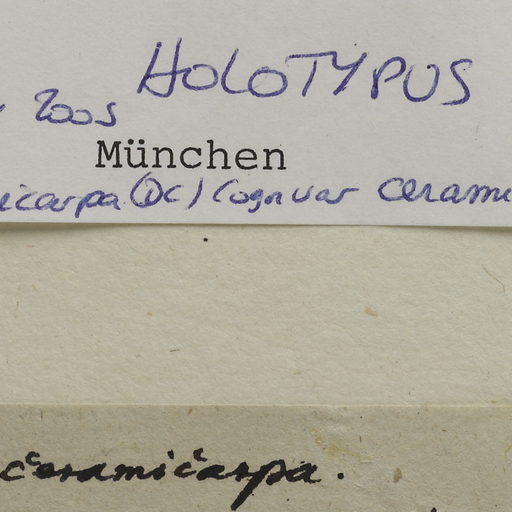 HOLOTYPUS
2005
München
icarpa (DC) Cogn var cerami
ceramicarpa.